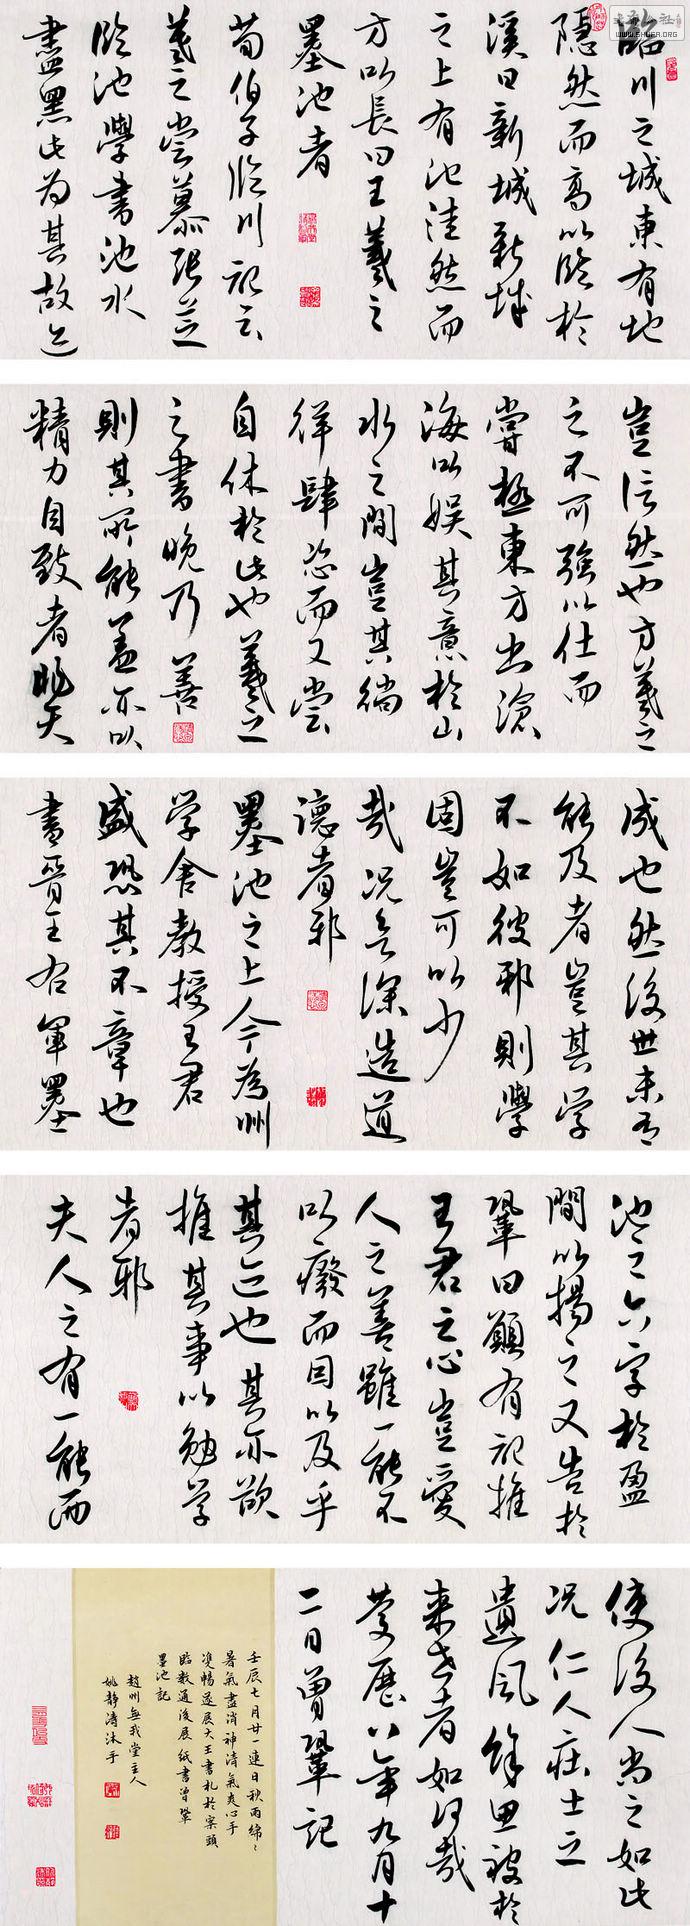 臨川之城東有地
隱然而高以臨於
溪曰新城新城
之上有池洼然而
方以長曰王羲之
墨池者
荀伯子臨川記云
羲之嘗慕張芝
臨池學書池水
盡黑此為其故迹
豈信然也方羲之
之不可強以仕而
嘗極東方出滄
海以娛其意於山
水之間豈其徜
徉肆恣而又嘗
自休於此也羲之
之書晚乃善
則其所能蓋亦以
精力自致者非天
成也然後世未有
能及者豈其学
不如彼邪則學
固豈可以少
哉況欲深造道
德者邪
墨池之上今為州
学舍教授王君
盛恐其不章也
書晉王右軍墨
池之六字於盈
間以揭之又告於
鞏曰願有記推
王君之心豈愛
人之善雖一能不
以癈而因以及乎
其迹也其亦欲
推其事以勉学
者邪
夫人之有一能而
使後人尚之如此
況仁人莊士之
遺風餘思被於
來世者如何哉
慶歷八年九月十
二日曾鞏記
壬辰七月廿一連日秋雨綿々
暑氣盡消神清氣爽心手
雙暢遂展大王書札於案頭
臨數通後展紙書曾鞏
墨池記
趙州無我堂主人
姚靜濤沐手